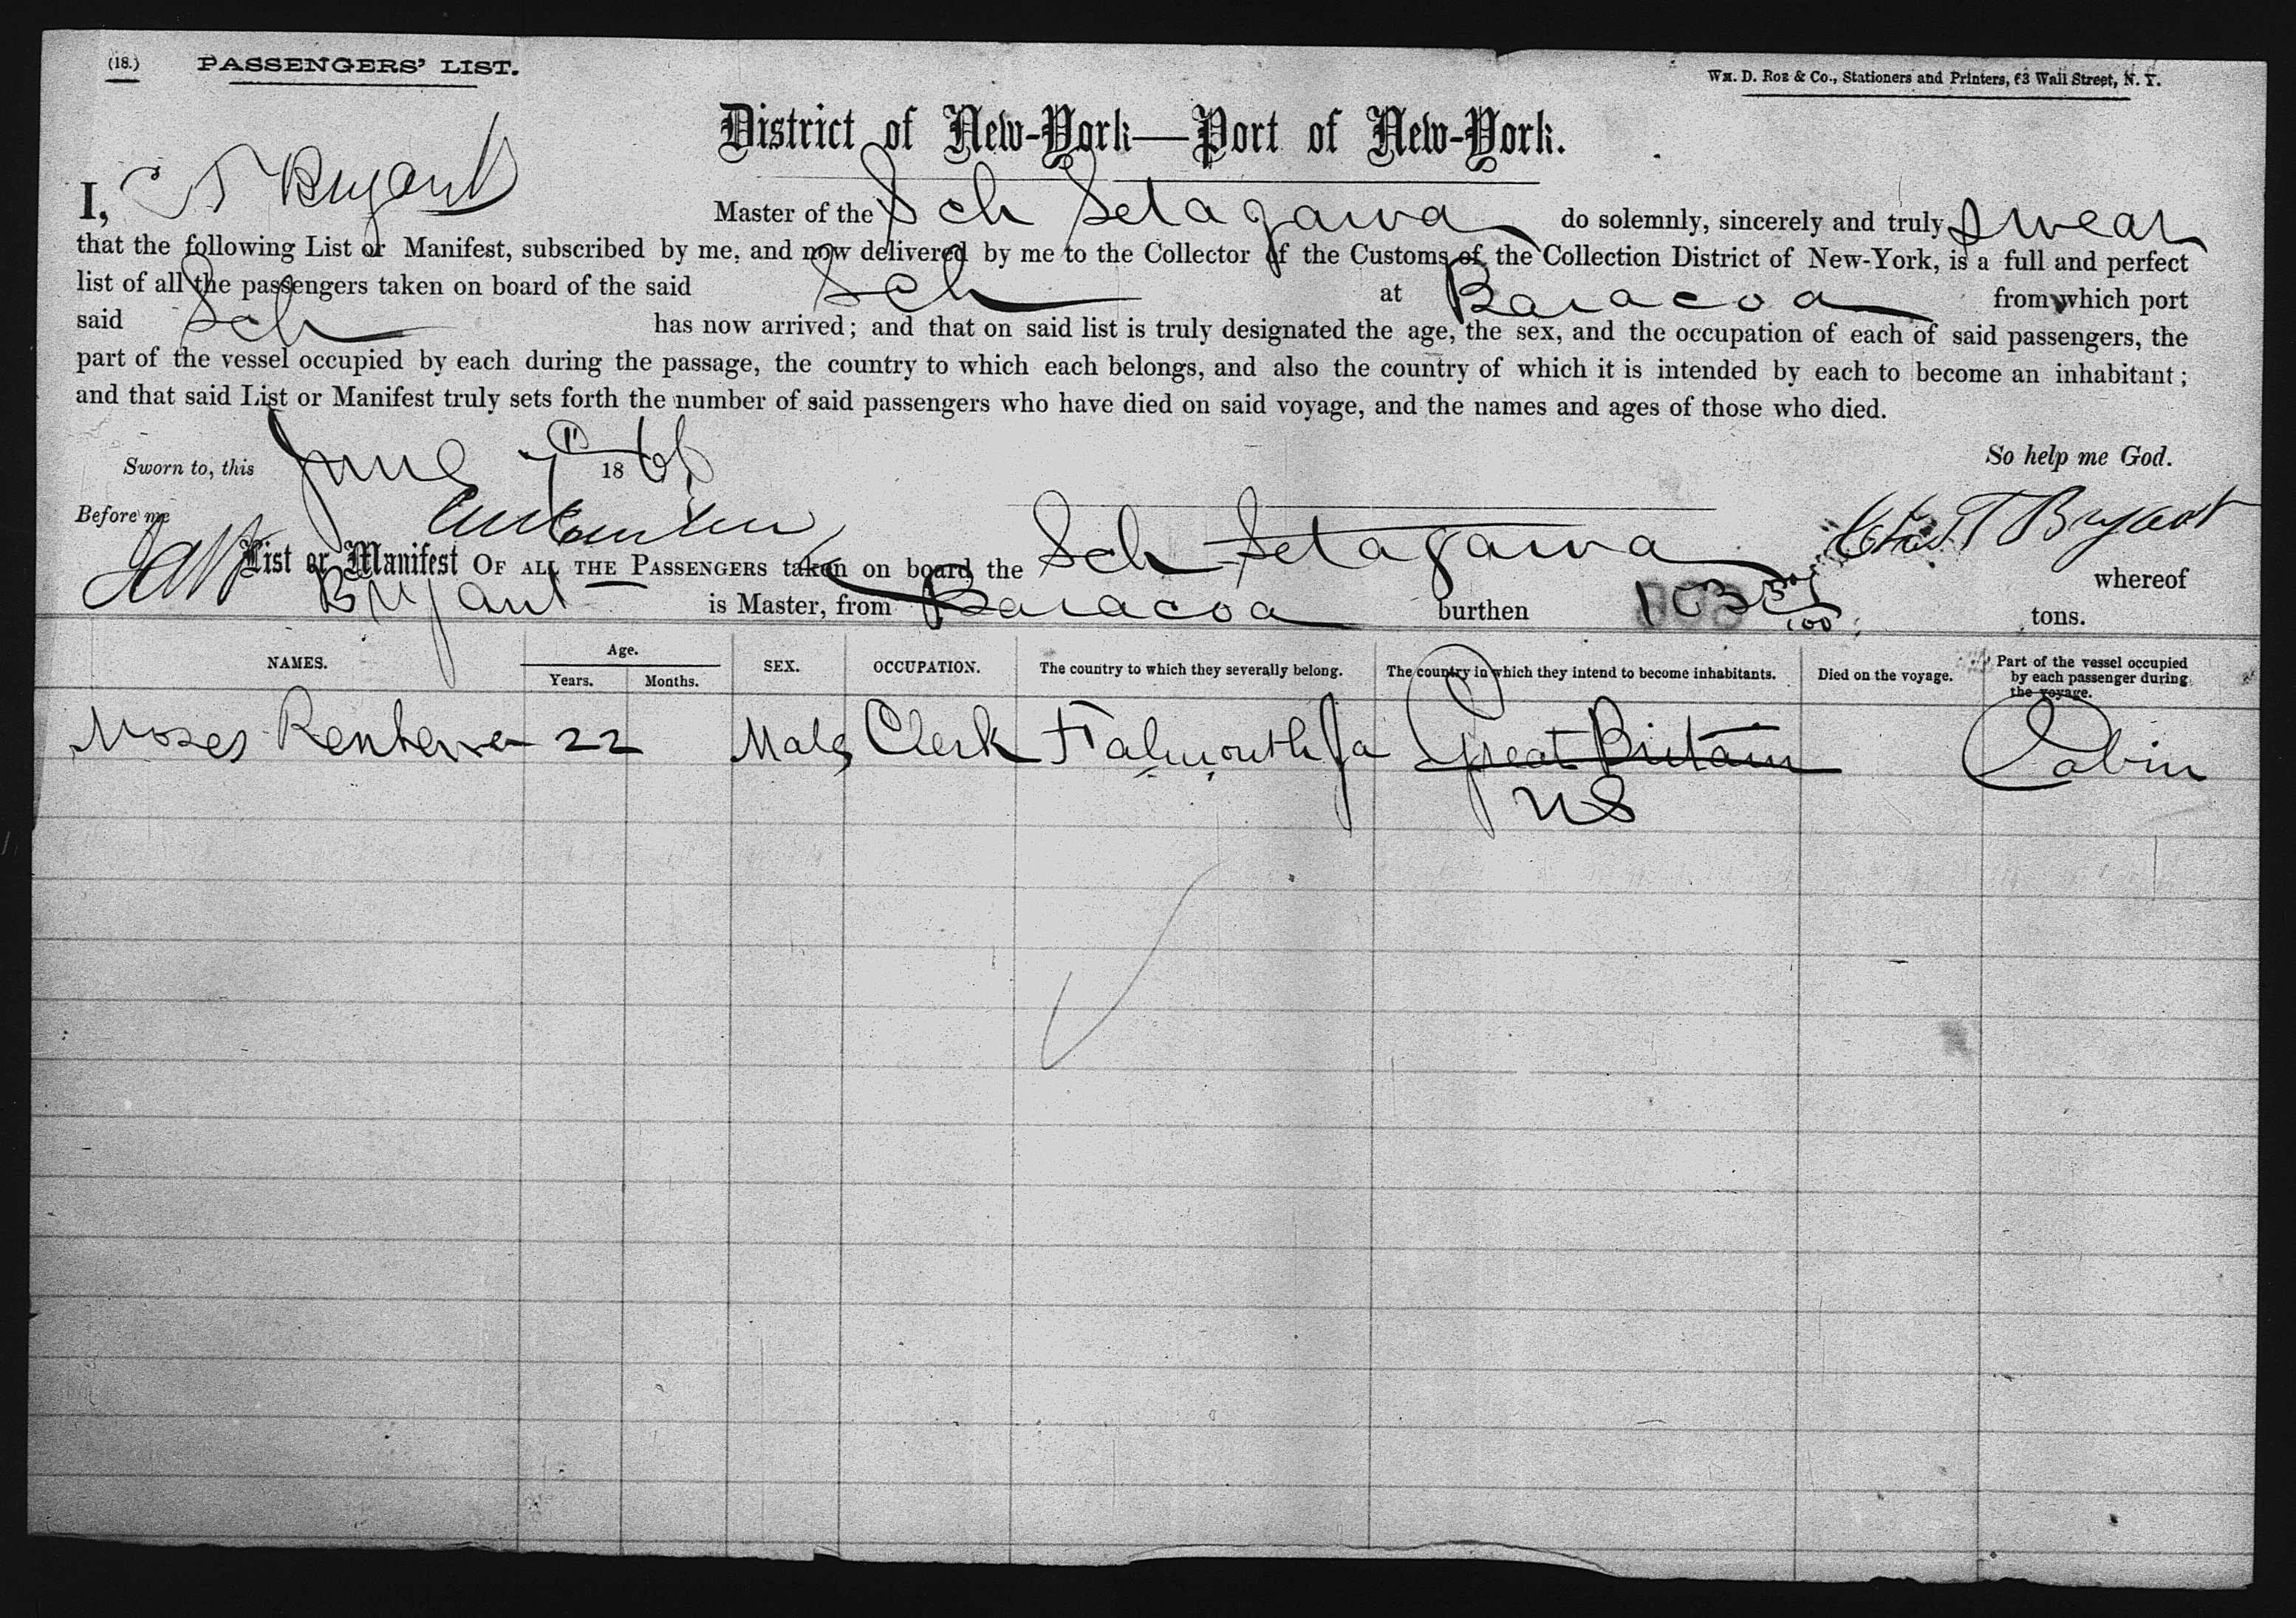 (18.) PASSENGERS' LIST. Wm. D. Roe & Co., Stationers and Printers, 63 Wall Street, N. Y.
District of New-York—Port of New-York.
I, C T Bryant Master of the Sch Setagawa do solemnly, sincerely and truly Swear
that the following List or Manifest, subscribed by me, and now delivered by me to the Collector of the Customs of the Collection District of New-York, is a full and perfect
list of all the passengers taken on board of the said Sch at Baracoa from which port
said Sch has now arrived; and that on said list is truly designated the age, the sex, and the occupation of each of said passengers, the
part of the vessel occupied by each during the passage, the country to which each belongs, and also the country of which it is intended by each to become an inhabitant;
and that said List or Manifest truly sets forth the number of said passengers who have died on said voyage, and the names and ages of those who died.
Sworn to, this June 18 So help me God.
Before me Chas T Bryant
List or Manifest OF ALL THE PASSENGERS taken on board the Sch Setagawa whereof
Bryant is Master, from Baracoa burthen 103 tons.
NAMES. Age. Years. Months. SEX. OCCUPATION. The country to which they severally belong. The country in which they intend to become inhabitants. Died on the voyage. Part of the vessel occupied by each passenger during the voyage.
Moses 22 Male Clerk Falmouth Ja Great Britain Cabin
US